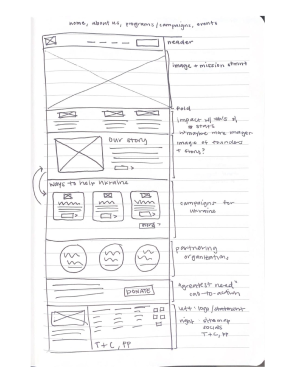 home, about us, programs/campaigns, events
header
image + mission
fold
impact w/
stats
maybe more images
our story
image of founders
+ story?
ways to help Ukraine
campaigns for
Ukraine
more >
partnering
organizations
"greatest need"
call-to-action
DONATE
left: logo/statement
right: sitemap
socials
T+C, PP
T+C, PP